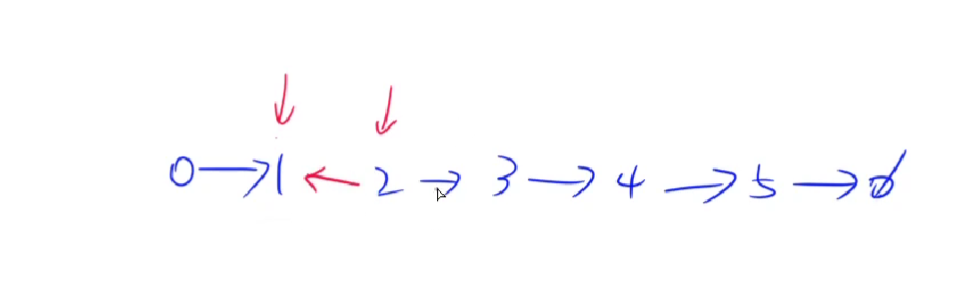 0→1←2→3→4→5→∅